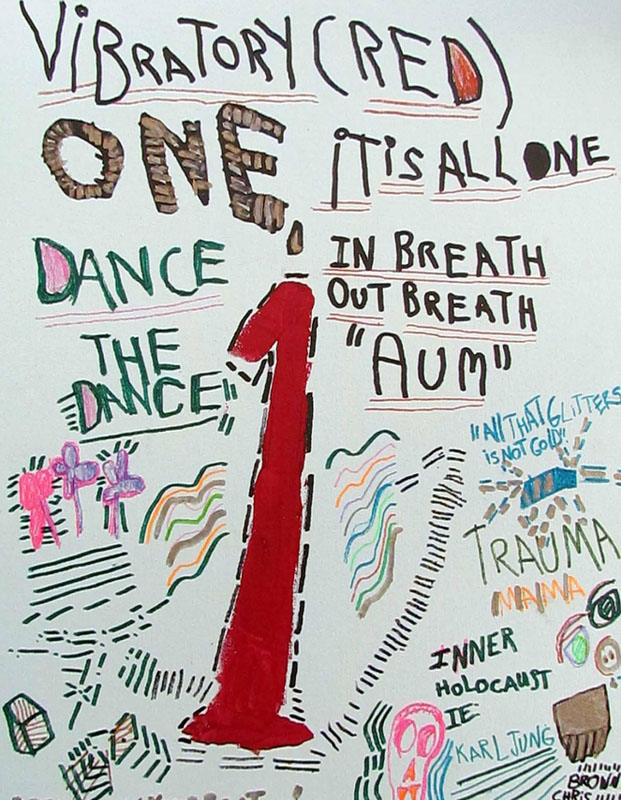 VIBRATORY (RED)
ONE, IT IS ALL ONE
DANCE
THE
DANCE"
IN BREATH
OUT BREATH
"AUM"
1
"All THAT GLITTERS
is NOT GOLD"
TRAUMA
MAMA
INNER
HOLOCAUST
IE
KARL JUNG
BROWN
CHRIS